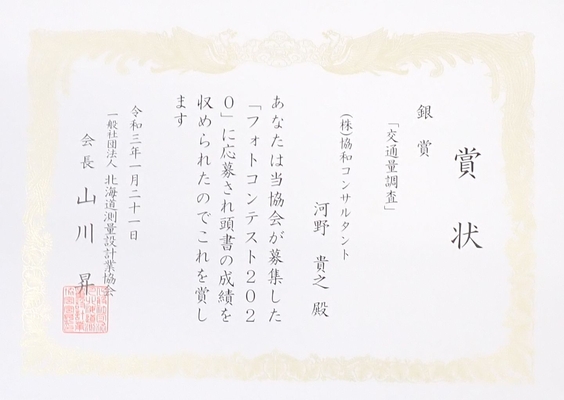 賞状
銀賞
「交通量調査」
(株)協和コンサルタント
河野 貴之 殿
あなたは当協会が募集した
「フォトコンテスト202
0」に応募され頭書の成績を
収められたのでこれを賞し
ます
令和三年一月二十一日
一般社団法人 北海道測量設計業協会
会長 山川 昇